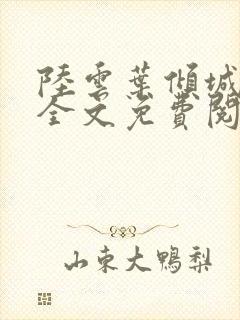 陸雲葉傾城
全文免費閱
山東大鴨梨